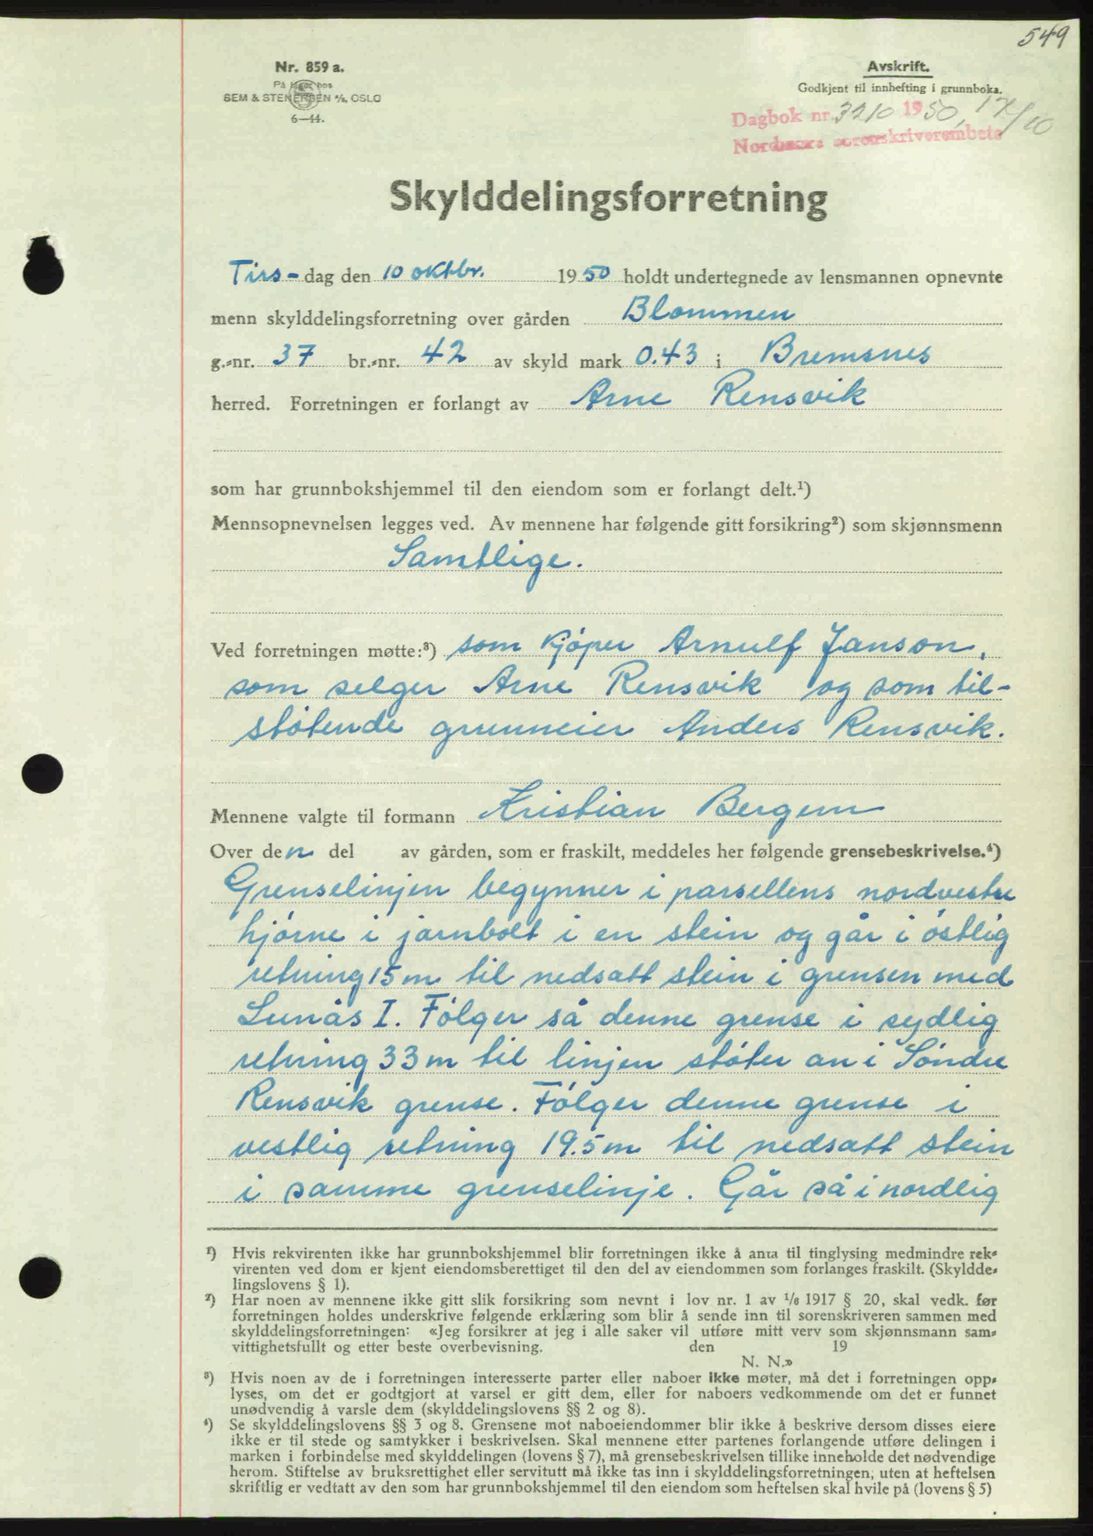 549
Nr. 859 a.
På lager hos
SEM & STENERSEN A/S, OSLO
6—44.
Avskrift.
Godkjent til innhefting i grunnboka.
Dagbok nr. 3210 1950, 17/10
Nordmøre sorenskriverembete
Skylddelingsforretning
Tirs-dag den 10 oktbr. 1950 holdt undertegnede av lensmannen opnevnte
menn skylddelingsforretning over gården Blommen
g.-nr. 37 br.-nr. 42 av skyld mark 0.43 i Bremsnes
herred. Forretningen er forlangt av Arne Rensvik
som har grunnbokshjemmel til den eiendom som er forlangt delt.¹)
Mennsopnevnelsen legges ved. Av mennene har følgende gitt forsikring²) som skjønnsmenn
Samtlige.
Ved forretningen møtte:³) som kjøper Arnulf Janson,
som selger Arne Rensvik og som til-
støtende grunneier Anders Rensvik.
Mennene valgte til formann Kristian Bergem
Over den del av gården, som er fraskilt, meddeles her følgende grensebeskrivelse.⁴)
Grenselinjen begynner i parsellens nordvestre
hjørne i jarnbolt i en stein og går i østlig
retning 15 m til nedsatt stein i grensen med
Lunås I. Følger så denne grense i sydlig
retning 33 m til linjen støter an i Søndre
Rensvik grense. Følger denne grense i
vestlig retning 19.5 m til nedsatt stein
i samme grenselinje. Går så i nordlig
¹) Hvis rekvirenten ikke har grunnbokshjemmel blir forretningen ikke å anta til tinglysing medmindre rek-
virenten ved dom er kjent eiendomsberettiget til den del av eiendommen som forlanges fraskilt. (Skyldde-
lingslovens § 1).
²) Har noen av mennene ikke gitt slik forsikring som nevnt i lov nr. 1 av 1/6 1917 § 20, skal vedk. før
forretningen holdes underskrive følgende erklæring som blir å sende inn til sorenskriveren sammen med
skylddelingsforretningen: «Jeg forsikrer at jeg i alle saker vil utføre mitt verv som skjønnsmann sam-
vittighetsfullt og etter beste overbevisning. den 19
N. N.»
³) Hvis noen av de i forretningen interesserte parter eller naboer ikke møter, må det i forretningen opp-
lyses, om det er godtgjort at varsel er gitt dem, eller for naboers vedkommende om det er funnet
unødvendig å varsle dem (skylddelingslovens §§ 2 og 8).
⁴) Se skylddelingslovens §§ 3 og 8. Grensene mot naboeiendommer blir ikke å beskrive dersom disses eiere
ikke er til stede og samtykker i beskrivelsen. Skal mennene etter partenes forlangende utføre delingen i
marken i forbindelse med skylddelingen (lovens § 7), må grensebeskrivelsen tillike inneholde det nødvendige
herom. Stiftelse av bruksrettighet eller servitutt må ikke tas inn i skylddelingsforretningen, uten at heftelsen
skriftlig er vedtatt av den som har grunnbokshjemmel til den eiendom som heftelsen skal hvile på (lovens § 5)